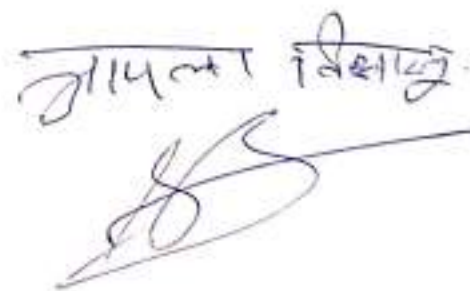 आपला विश्वासू.